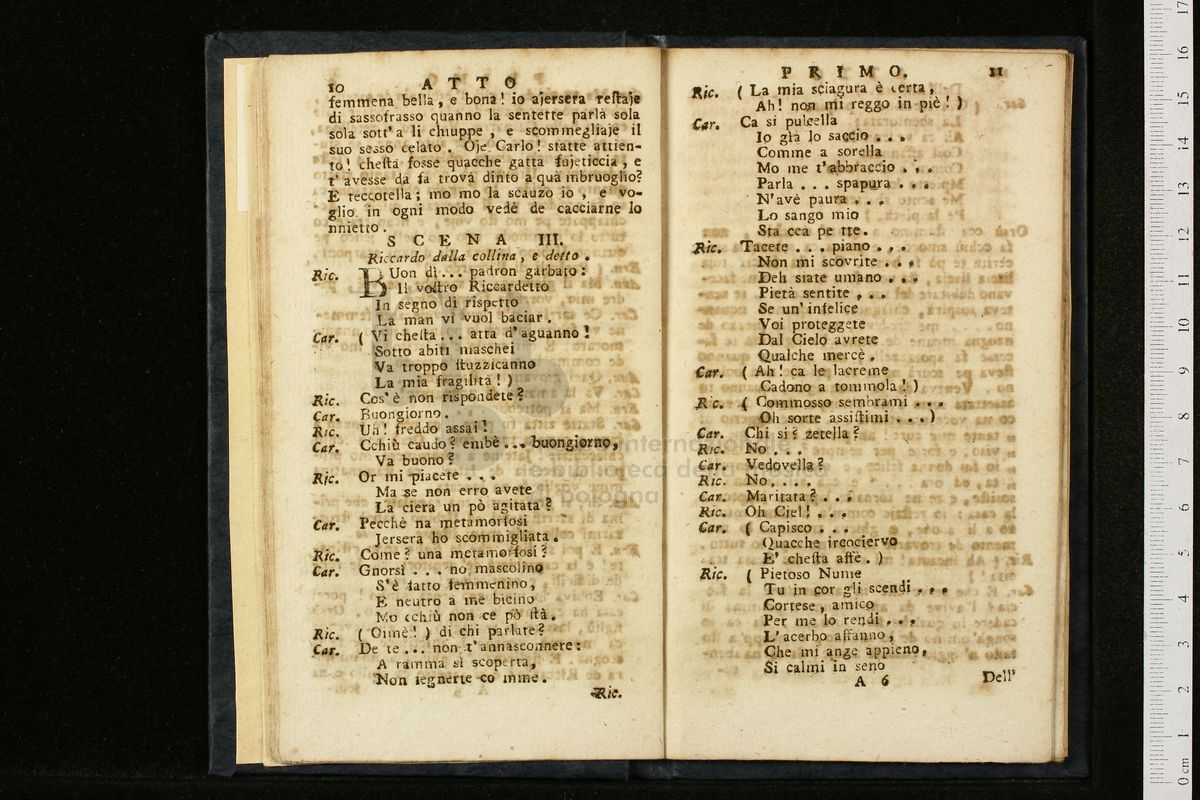 10 ATTO
femmena bella, e bona! io ajersera reſtaje
di sassofrasso quanno la sentette parlà sola
sola sott'a li chiuppe, e scommegliaje il
suo sesso celato. Oje Carlo! statte attien-
to! cheſta fosse quacche gatta fujeticcia, e
t'avesse da fa trovà dinto a quà mbruoglio?
E reccotella; mo mo la scauzo io, e vo-
glio in ogni modo vedè de cacciarne lo
nnietto.
SCENA III.
Riccardo dalla collina, e detto.
Ric. BUon dì... padron garbato:
Il voſtro Riccardetto
In segno di rispetto
La man vi vuol baciar.
Car. (Vi cheſta... atta d'aguanno!
Sotto abiti maschei
Va troppo ſtuzzicanno
La mia fragilità!)
Ric. Cos'è non rispondete?
Car. Buongiorno.
Ric. Uh! freddo assai!
Car. Cchiù caudo? embè... buongiorno,
Va buono?
Ric. Or mi piacete...
Ma se non erro avete
La ciera un pò agitata?
Car. Pecchè na metamorfosi
Jersera ho scommigliata.
Ric. Come? una metamorfosi?
Car. Gnorsì... no mascolino
S'è fatto femmenino,
E neutro a me bicino
Mo cchiù non ce pò ſtà.
Ric. (Oimè!) di chi parlate?
Car. De te... non t'annasconnere:
A ramma si scoperta,
Non fegnerte co mme.
Ric.
PRIMO. 11
Ric. (La mia sciagura è certa,
Ah! non mi reggo in piè!)
Car. Ca si pulcella
Io già lo saccio...
Comme a sorella
Mo me t'abbraccio...
Parla... spapura...
N'avè paura...
Lo sango mio
Sta cca pe tte.
Ric. Tacete... piano...
Non mi scovrite...
Deh siate umano...
Pietà sentite...
Se un'infelice
Voi proteggete
Dal Cielo avrete
Qualche mercè.
Car. (Ah! ca le lacreme
Cadono a tommola!)
Ric. (Commosso sembrami...
Oh sorte assiſtimi...)
Car. Chi si? zetella?
Ric. No...
Car. Vedovella?
Ric. No....
Car. Maritata?...
Ric. Oh Ciel!...
Car. (Capisco...
Quacche ircociervo
E' cheſta affè.)
Ric. (Pietoso Nume
Tu in cor gli scendi...
Cortese, amico
Per me lo rendi...
L'acerbo affanno,
Che mi ange appieno,
Si calmi in seno
A 6 Dell'